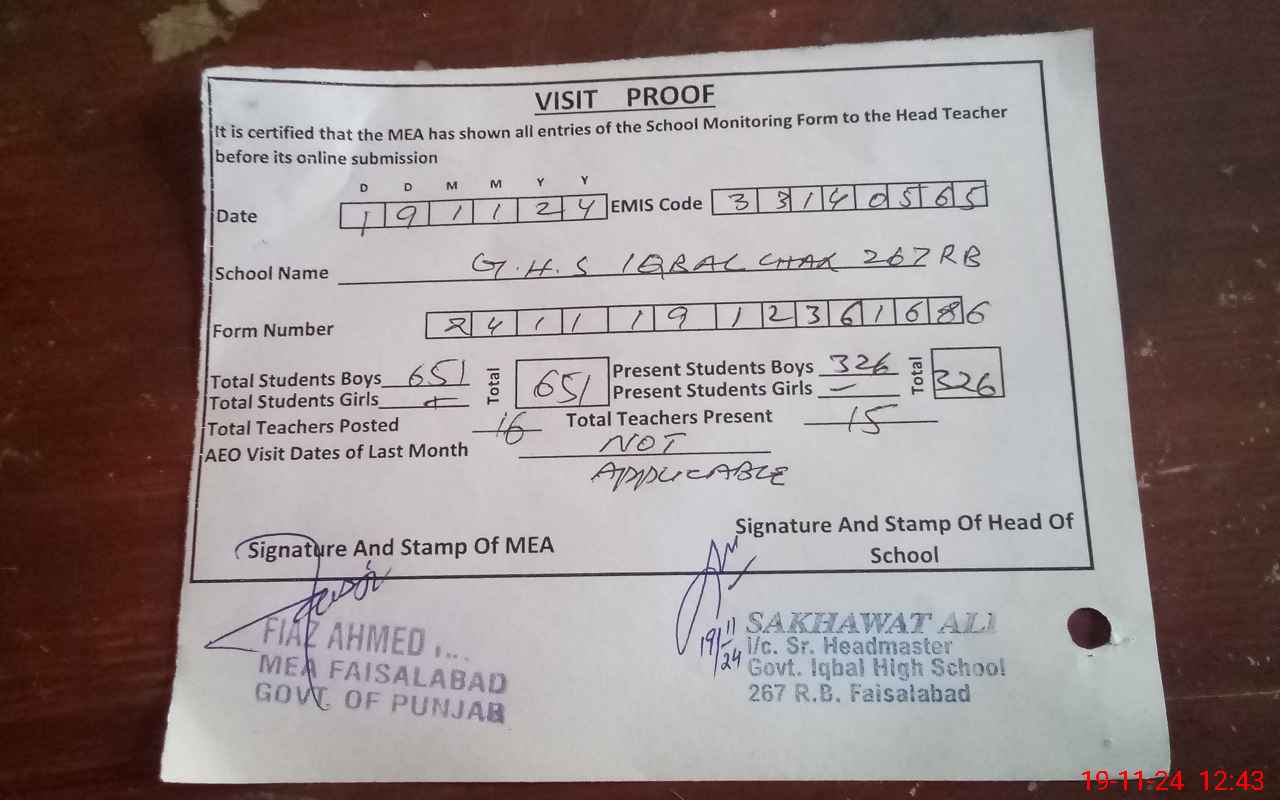 VISIT PROOF
It is certified that the MEA has shown all entries of the School Monitoring Form to the Head Teacher
before its online submission
D D M M Y Y
Date 1 9 1 1 2 4 EMIS Code 3 3 1 4 0 5 6 5
School Name G.H.S IQBAL CHAK 267 RB
Form Number 2 4 1 1 1 9 1 2 3 6 1 6 8 6
Total Students Boys 651 Total 651 Present Students Boys 326 Total 326
Total Students Girls - Present Students Girls -
Total Teachers Posted 16 Total Teachers Present 15
AEO Visit Dates of Last Month NOT
APPLICABLE
Signature And Stamp Of MEA
Signature And Stamp Of Head Of
School
FIAZ AHMED
MEA FAISALABAD
GOVT. OF PUNJAB
19/11/24
SAKHAWAT ALI
i/c. Sr. Headmaster
Govt. Iqbal High School
267 R.B. Faisalabad
19-11-24 12:43